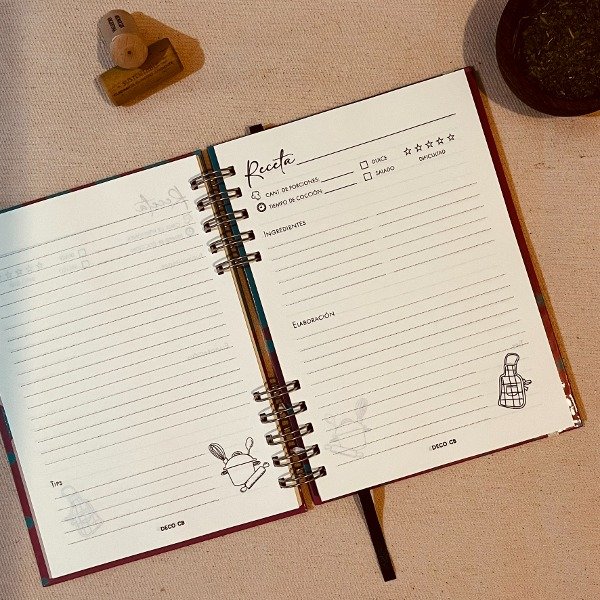 Tips
©DECO CB
Receta
CANT. DE PORCIONES:
DULCE
TIEMPO DE COCCIÓN:
SALADO
DIFICULTAD
INGREDIENTES
ELABORACIÓN
©DECO CB